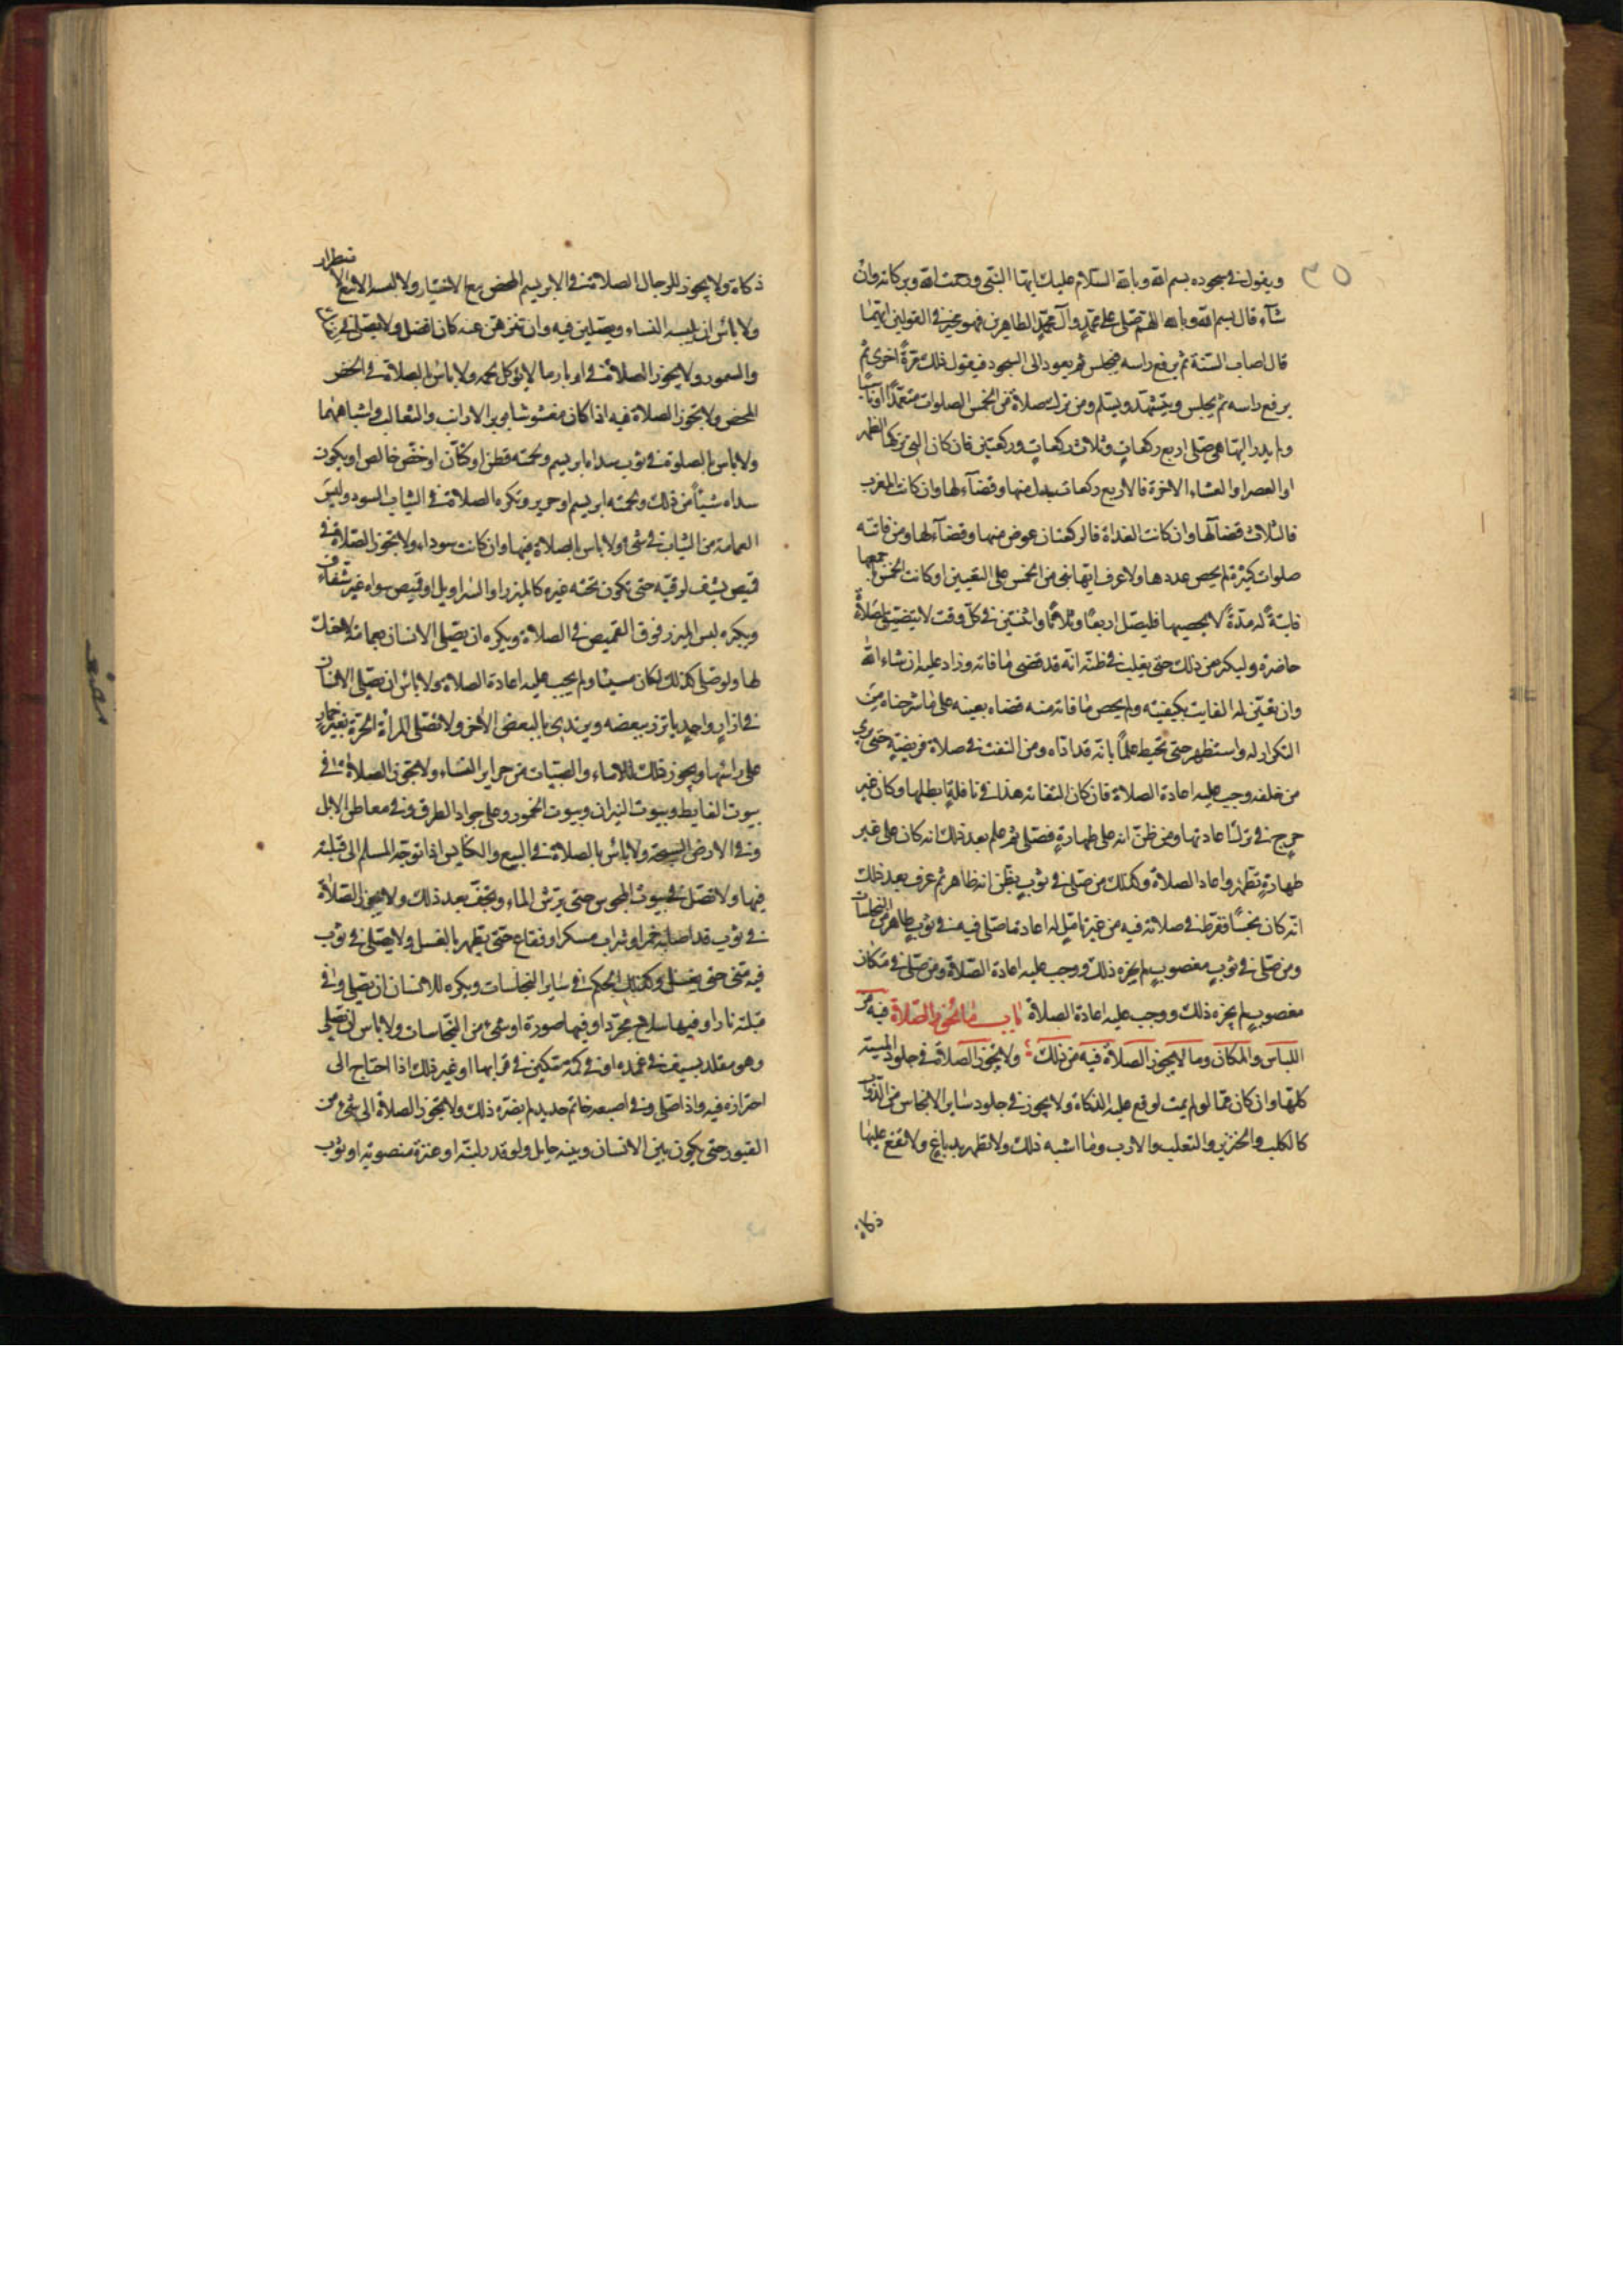 ٣٥
ويقول في سجوده بسم الله وبالله السلام عليك ايها النبي ورحمت الله وبركاته وان
شآء قال بسم الله وبالله اللهم صل على محمد وآل محمد الطاهرين فهو مخير في القولين ايهما
قال اصاب السنة ثم يرفع راسه فيجلس ثم يعود الى السجود فيقول ذلك مرةً اخرى ثم
يرفع راسه ثم يجلس ويتشهد ويسلم ومن ترك صلاة من الخمس الصلوات متعمدًا او ناسيًا
ولم يدر ايها هي صلى اربع ركعاتٍ وثلاث ركعاتٍ وركعتين فان كان التي تركها الظهر
او العصر او العشاء الاخرة فالاربع ركعات بدل منها وقضآء لها وان كانت المغرب
فالثلاث قضآء لها وان كانت الغداة فالركعتان عوض منها وقضآء لها ومن فاتته
صلوات كثيرة لم يحص عددها ولا عرف ايها هي من الخمس على التعيين او كانت الخمس باجمعها
فايتةً له مدّةً لا يحصيها فليصل اربعًا وثلاثًا واثنتين في كل وقت لا يتضيق لصلاةٍ
حاضرة وليكثر من ذلك حتى يغلب في ظنه انه قد قضى ما فاته وزاد عليه ان شاء الله
وان تعين له الفايت بكيفيته ولم يحص ما فاته منه قضاه بعينه على ما شرحناه من
التكرار له واستظهر حتى يحيط علمًا بانه قد اداه ومن التفت في صلاة فريضةٍ حتى يرى
من خلفه وجب عليه اعادة الصلاة فان كان التفاته هذا في نافلةٍ ابطلها وكان غير
حرج في ترك اعادتها ومن ظن انه على طهارةٍ فصلى ثم علم بعد ذلك انه كان على غير
طهارةٍ تطهر واعاد الصلاة وكذلك من صلى في ثوبٍ يظن انه طاهر ثم عرف بعد ذلك
انه كان نجسًا ففرط في صلاته فيه من غير تامّلٍ له اعاد ما صلى فيه منه في ثوبٍ طاهر من النجاسات
ومن صلى في ثوبٍ مغصوبٍ لم يجزه ذلك ووجب عليه اعادة الصلاة ومن صلى في مكان
مغصوبٍ لم يجزه ذلك ووجب عليه اعادة الصلاة باب ما تجوز الصلاة فيه من
اللباس والمكان وما لا يجوز الصلاة فيه من ذلك ولا يجوز الصلاة في جلود الميته
كلها وان كان مما لو لم يمت لوقع عليه الذكاة ولا يجوز في جلود ساير الانجاس من الدوابّ
كالكلب والخنزير والثعلب والارنب وما اشبه ذلك ولا تطهر بدباغٍ ولا تقع عليها
ذكاة
ذكاة ولا يجوز للرجال الصلاة في الابريسم المحض مع الاختيار ولا لبسه الا مع الاضطرار
ولا باس ان يلبسه النساء ويصلين فيه وان تنزهن عنه كان افضل ولا يصلى في
والسمور ولا يجوز الصلاة في اوبار ما لا يؤكل لحمه ولا باس بالصلاة في الخز
المحض ولا تجوز الصلاة فيه اذا كان مغشوشا بوبر الارانب والثعالب واشباههما
ولا باس بالصلوة في ثوب سداه ابريسم ولحمته قطن او كتّان او خزّ خالص او يكون
سداه شيئًا من ذلك ولحمته ابريسم او حرير وتكره الصلاة في الثياب السود وليس
العمامة من الثياب في شئ ولا باس بالصلاة فيها وان كانت سوداء ولا تجوز الصلاة في
قميص يشف لرقته حتى تكون تحته غيره كالميزر او السراويل او قميص سواه غير شفاف
ويكره لبس الميزر فوق القميص في الصلاة ويكره ان يصلى الانسان بعمامة لا حنك
لها ولو صلى كذلك لكان مسيئا ولم يجب عليه اعادة الصلاة ولا باس ان يصلى الانسان
في ازارٍ واحدٍ ياتزر ببعضه ويرتدى بالبعض الاخر ولا تصلى المراة الحرة بغير خمارٍ
على راسها ويجوز ذلك للاماء والصبيات من حراير النساء ولا تجوز الصلاة في
بيوت الغايط وبيوت النيران وبيوت الخمور وعلى جواد الطرق وفي معاطن الابل
وفي الارض السبخة ولا باس بالصلاة في البيع والكنايس اذا توجه المسلم الى قبلته
فيها ولا تصل في بيوت المجوس حتى يرش الماء وتجف بعد ذلك ولا يجوز الصلاة
في ثوب قد اصابه خمر او شراب مسكر او فقاع حتى يطهر بالغسل ولا يصلى في ثوب
فيه منى حتى يغسل وكذلك الحكم في ساير النجاسات ويكره للانسان ان يصلى وفي
قبلته نار او فيها سلاح مجرّد او فيها صورة او شئ من النجاسات ولا باس ان يصلى
وهو مقلد بسيف في غمده او في كمه سكين في قرابها او غير ذلك اذا احتاج الى
احترازه فيه واذا صلى وفي اصبعه خاتم حديد لم يضره ذلك ولا يجوز الصلاة الى شئ من
القبور حتى يكون بين الانسان وبينه حايل ولو قدر لبنة او عنزة منصوبة او ثوب